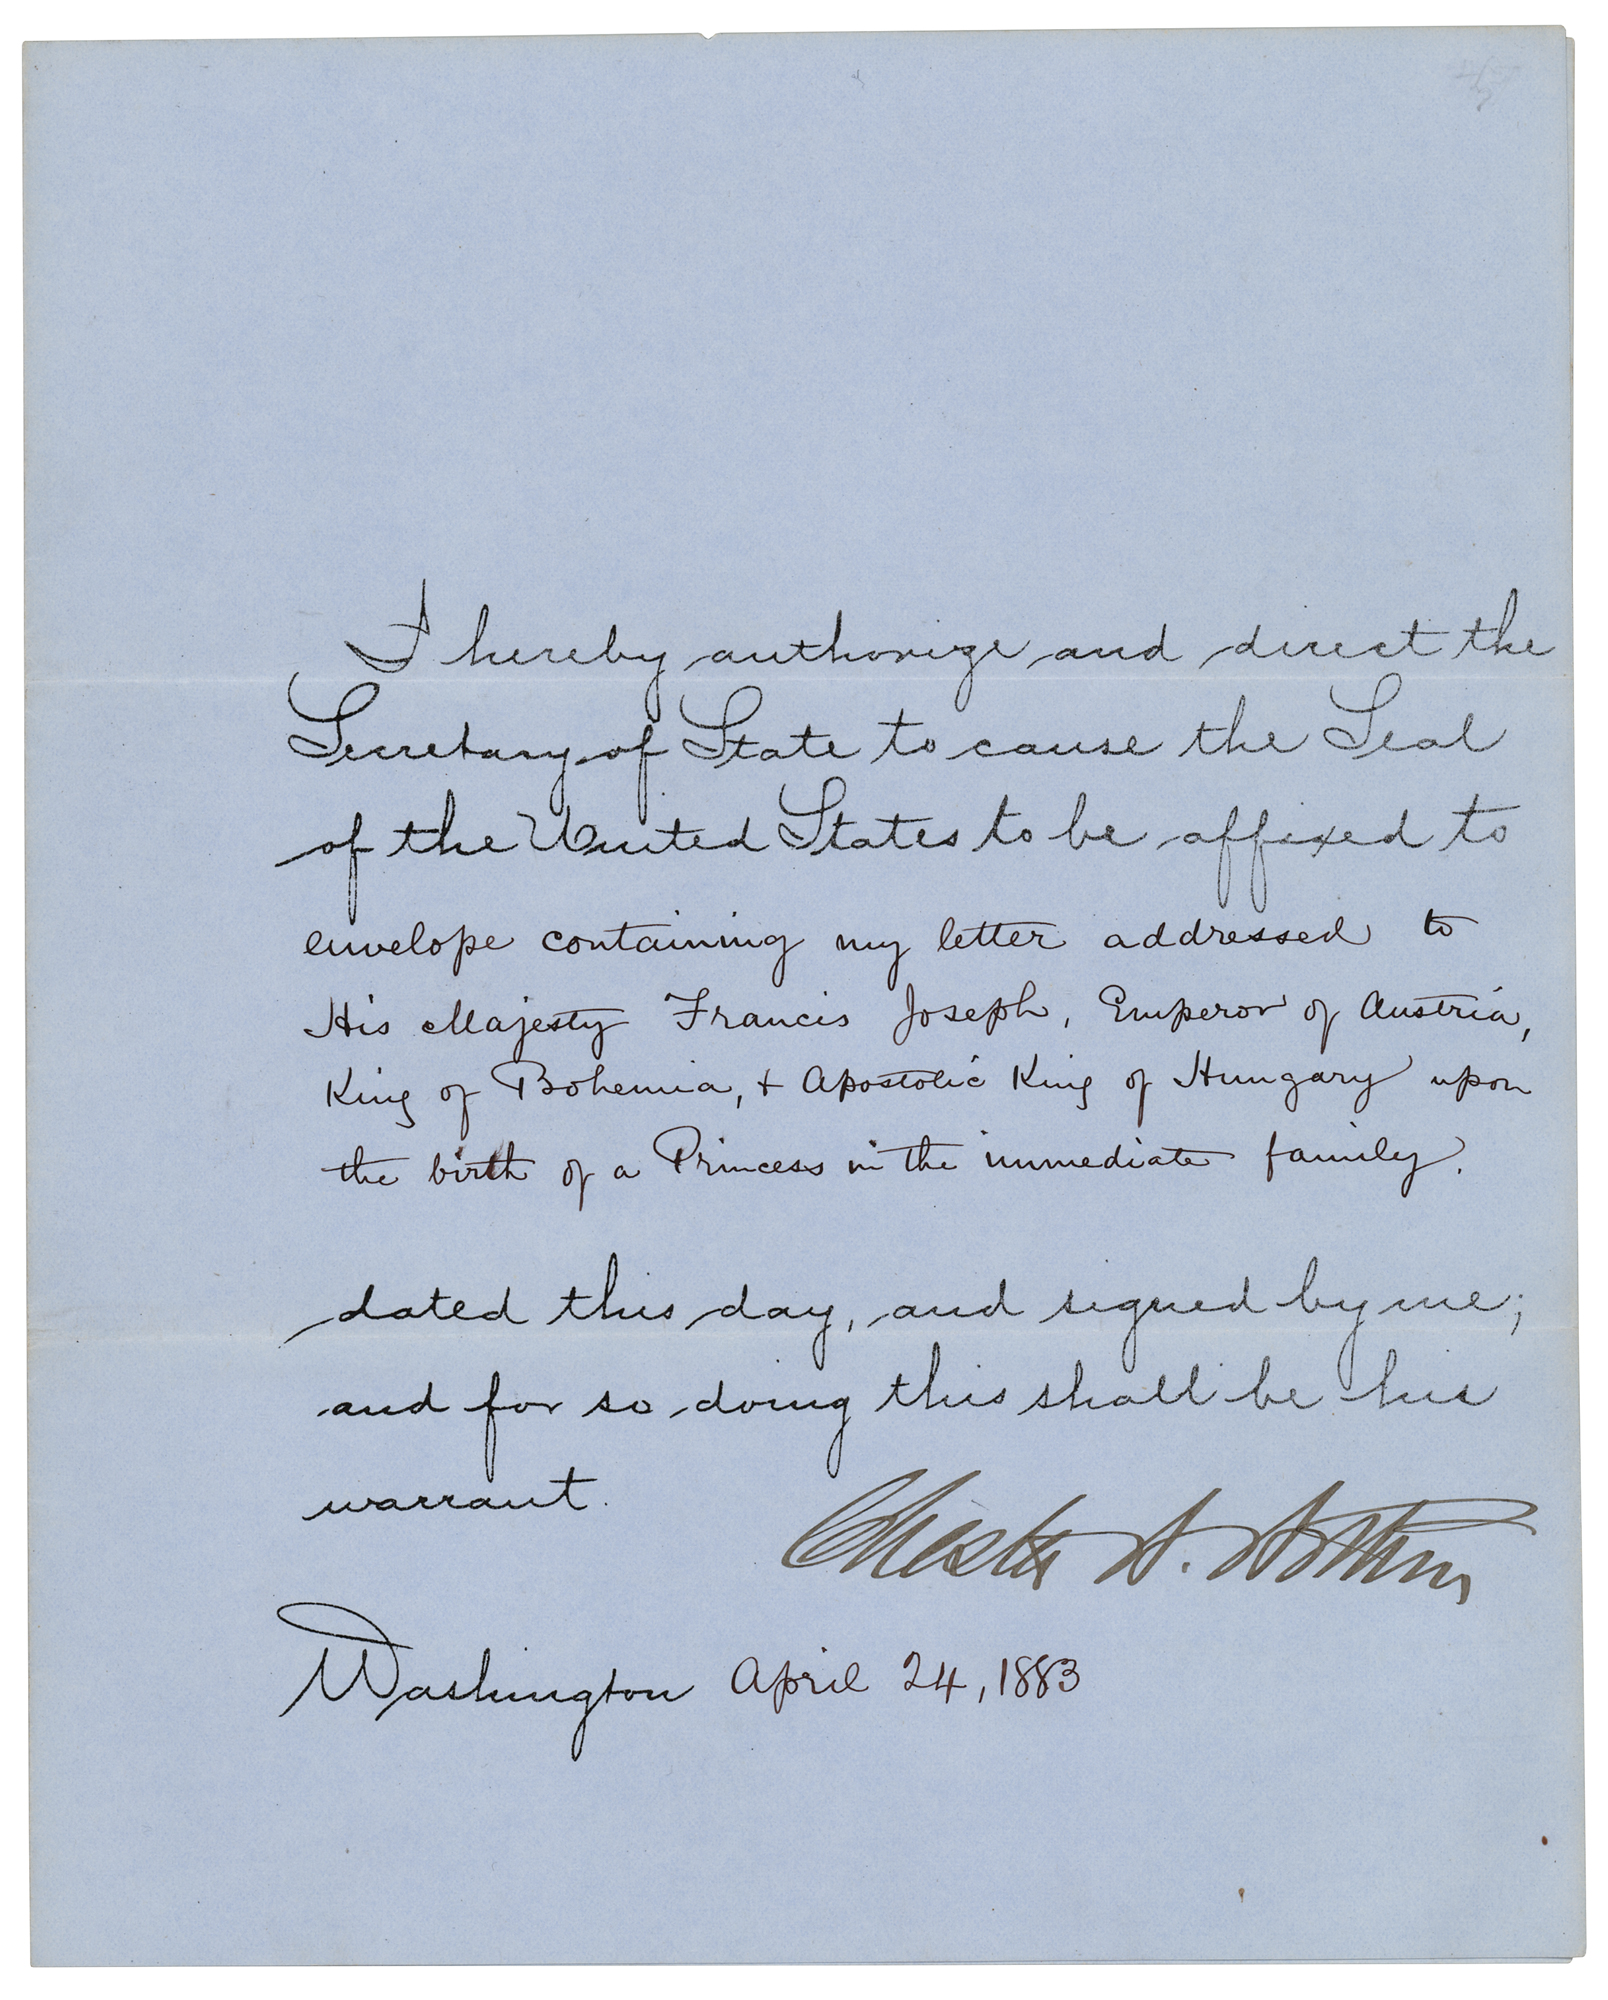 I hereby authorize and direct the
Secretary of State to cause the Seal
of the United States to be affixed to
envelope containing my letter addressed to
His Majesty Francis Joseph, Emperor of Austria,
King of Bohemia, + Apostolic King of Hungary upon
the birth of a Princess in the immediate family.
dated this day, and signed by me;
and for so doing this shall be his
warrant.
Chester A. Arthur
Washington April 24, 1883